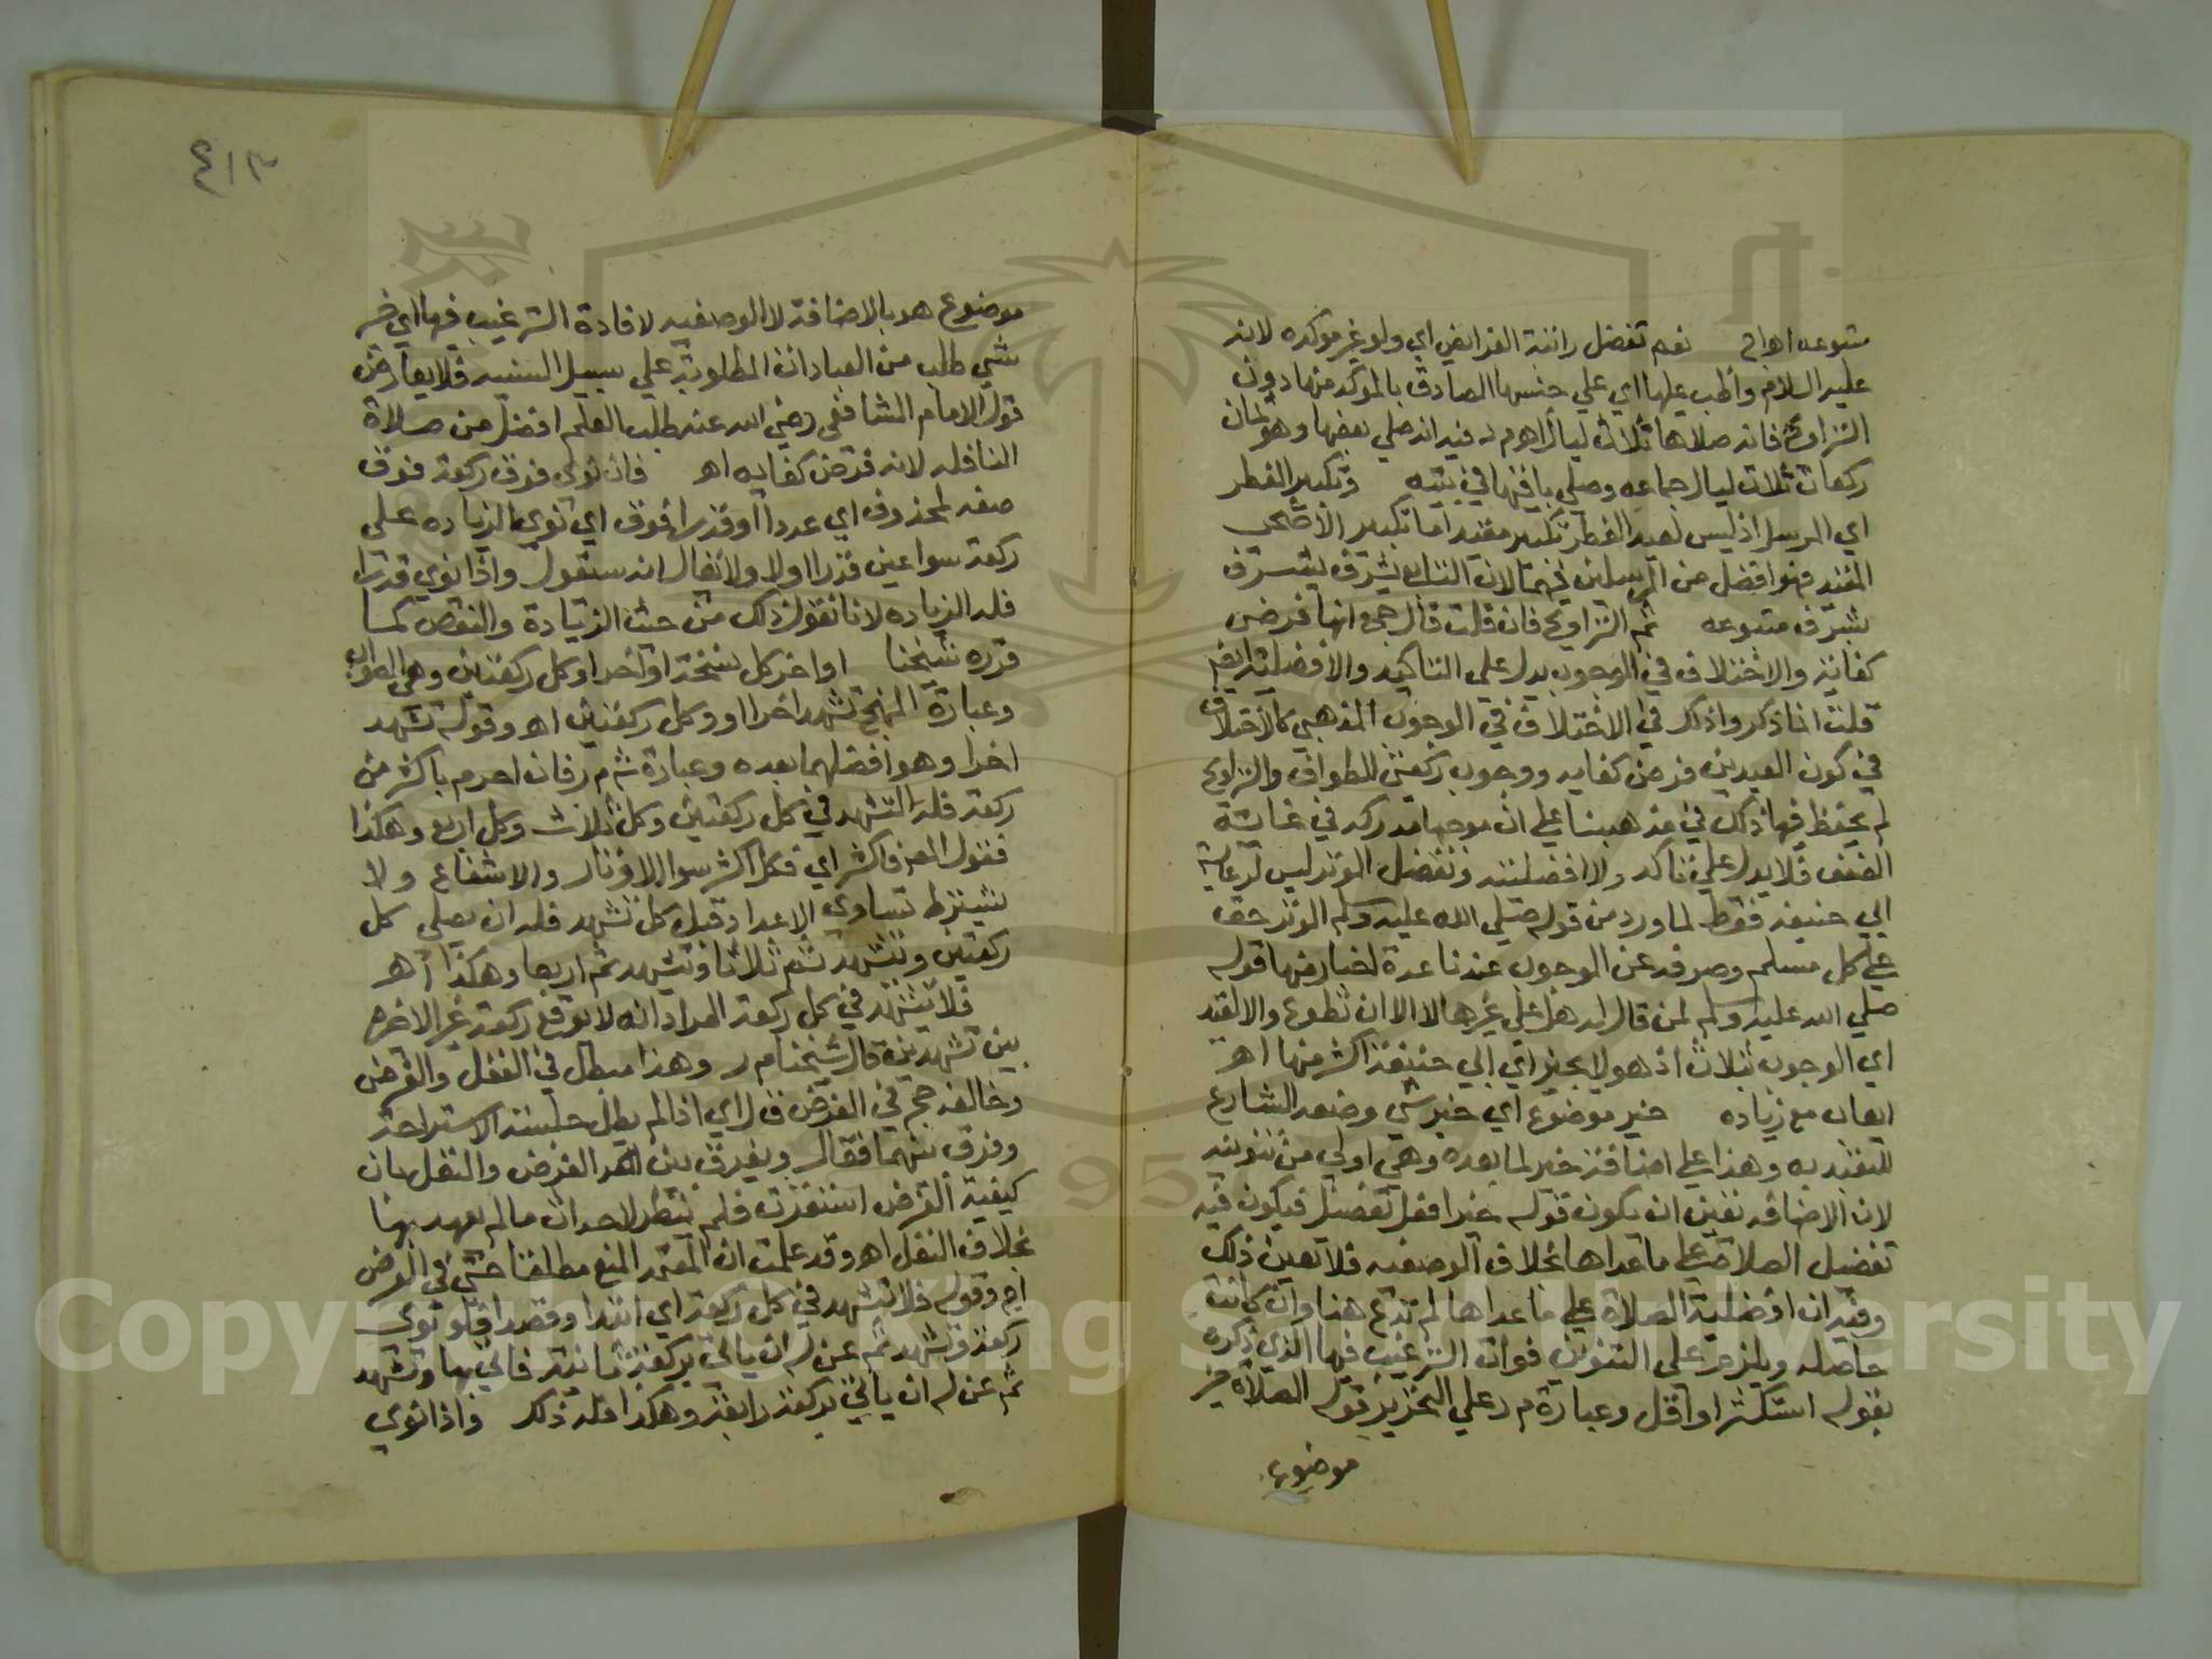 متبوعه اهـ اج نعم تفضل راتبة الفرائض اي ولو غير موكده لانه
عليه السلام واظب عليها اي علي جنسها الصادق بالموكد منها دون
التراويح فانه صلاها ثلاث ليال اهـ م د فيه انه صلي بعضها وهو ثمان
ركعات ثلاث ليال جماعه وصلي باقيها في بيته وتكبير الفطر
اي المرسل اذ ليس لعيد الفطر تكبير مقيد اما تكبير الأضحى
المقيد فهو افضل من المرسلين فيهما لان التابع يشرف بشرف
بشرف متبوعه ثم التراويح فان قلت قال حج انها فرض
كفاية والاختلاف في الوجوب يدل علي التاكيد والافضلية ايضا
قلت انما ذكروا ذلك في الاختلاف في الوجوب المذهبي كالاختلاف
في كون العيدين فرض كفايه ووجوب ركعتي الطواف والتراويح
لم يحفظ فيها ذلك في مذهبنا علي ان موجبها مدركه في غاية
الضعف فلا يدل علي تاكد ولا افضليته وتفضل الوتر ليس لرعاية
ابي حنيفه فقط لما ورد من قوله صلي الله عليه وسلم الوتر حق
علي كل مسلم وصرفه عن الوجوب عندنا عدة اخبار منها قوله
صلي الله عليه وسلم لمن قال له هل علي غيرها لا الا ان تطوع والا لقيد
اي الوجوب بثلاث اذ هو لا يجيز اي ابي حنيفة اكثر منها اهـ
ايعاب مع زياده خير موضوع اي خير شي وضعه الشارع
للتعبد به وهذا علي اضافة خير لما بعده وهي اولي من تنوينه
لان الاضافه تعين ان يكون قوله خير افعل تفضيل فيكون فيه
تفضيل الصلاة علي ما عداها بخلاف الوصفيه فلا تعين ذلك
وفيه ان افضلية الصلاة علي ما عداها لم تدع هنا وان كانت
حاصله ويلزم علي التنوين فوات الترغيب فيها الذي ذكره
بقوله استكثر او اقل وعبارة م ر علي التحرير قوله الصلاة خير
موضوع
٤١٣
موضوع هو بالاضافة لا الوصفيه لافادة الترغيب فيها اي خير
شي طلب من العبادات المطلوبة علي سبيل السنيه فلا يعارض
قول الامام الشافعي رضي الله عنه طلب العلم افضل من صلاة
النافله لانه فرض كفايه اهـ فان نوى فوق ركعة فوق
صفه لمحذوف اي عددا او قدرا فوق اي نوى الزياده على
ركعة سوا عين قدرا اولا ولا يقال انه سيقول واذا نوي قدرا
فله الزياده لانا نقول ذلك من حيث الزيادة والنقص كما
قرره شيخنا اواخر كل نسخة او آخرا وكل ركعتين وهي الصواب
وعبارة المنهج تشهد اخرا او وكل ركعتين اهـ وقوله تشهد
اخرا وهو افضلهما بعده وعبارة ش م ر فان احرم باكثر من
ركعة فله التشهد في كل ركعتين وكل ثلاث وكل اربع وهكذا
فقول المص فاكثر اي فكل اكثر سوا الاوتار والاشفاع ولا
يشترط تساوي الاعداد قبل كل تشهد فله ان يصلي كل
ركعتين وتشهد ثم ثلاثا وتشهد ثم اربعا وهكذا اهـ
فلا تشهد في كل ركعة المراد انه لا يوقع ركعة غير الاخيره
بين تشهدين قال شيخنا م ر وهذا مبطل في النفل والفرض
وخالفه حج في الفرض ق ل اي اذا لم يطل جلسة الاستراحة
وفرق بينهما فقال ويفرق بين الفرض والنفل بان
كيفية الفرض استقرت فلم ينظر لاحداث ما لم يعهد بها
بخلاف النفل اهـ وقد علمت ان المعتمد المنع مطلقا حتي في الفرض
اج وقوله فلا تشهد في كل ركعة اي ابتدا وقصدا فلو نوى
ركعة وتشهد ثم عن له ان ياتي بركعة ثانية فاتي بها وتشهد
ثم عن له ان ياتي بركعة رابعة وهكذا فله ذلك واذا نوي
Copyright © King Saud University